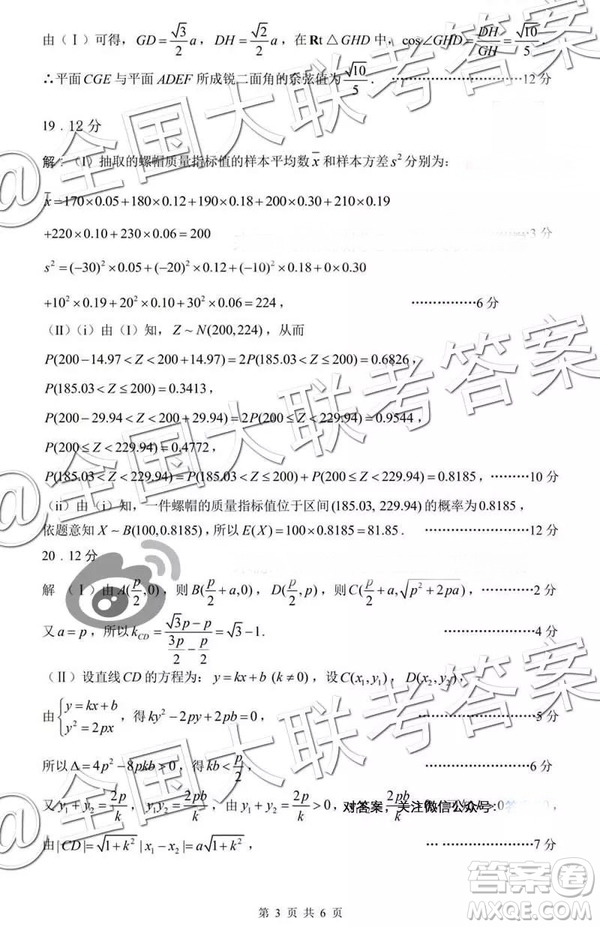 由(Ⅰ)可得，GD=√3/2 a，DH=√2/2 a，在Rt△GHD中，cos∠GHD=DH/GH=√10/5，
∴平面CGE与平面ADEF所成锐二面角的余弦值为√10/5．……………………12分
19．12分
解：(I)抽取的螺帽质量指标值的样本平均数x̄和样本方差s²分别为：
x̄=170×0.05+180×0.12+190×0.18+200×0.30+210×0.19
+220×0.10+230×0.06=200 3分
s²=(−30)²×0.05+(−20)²×0.12+(−10)²×0.18+0×0.30
+10²×0.19+20²×0.10+30²×0.06=224， ……………6分
(II)(i)由(I)知，Z~N(200,224)，从而
P(200−14.97<Z<200+14.97)=2P(185.03<Z≤200)=0.6826，
P(185.03<Z≤200)=0.3413，
P(200−29.94<Z<200+29.94)=2P(200≤Z<229.94)=0.9544，
P(200≤Z<229.94)=0.4772，
P(185.03<Z<229.94)=P(185.03<Z≤200)+P(200≤Z<229.94)=0.8185，………10分
(ii)由(i)知，一件螺帽的质量指标值位于区间(185.03, 229.94)的概率为0.8185，
依题意知X~B(100,0.8185),所以E(X)=100×0.8185=81.85． ……………12分
20．12分
解 (Ⅰ)由A(p/2,0)，则B(p/2+a,0)，D(p/2,p)，则C(p/2+a,√(p²+2pa))，…………2分
又a=p，所以k_CD=(√3p−p)/(3p/2−p/2)=√3−1. ……………4分
(Ⅱ)设直线CD的方程为：y=kx+b (k≠0)，设C(x₁,y₁)，D(x₂,y₂)，
由{y=kx+b y²=2px，得ky²−2py+2pb=0， ……………5分
所以Δ=4p²−8pkb>0，得kb<p/2， ……………6分
又y₁+y₂=2p/k，y₁y₂=2pb/k，由y₁+y₂=2p/k>0，
对答案，关注微信公众号：
由|CD|=√(1+k²)|x₁−x₂|=a√(1+k²)， ……………7分
第 3 页 共 6 页
@全国大联考答案
@全国大联考答案
@全国大联考答案
答案圈
MXQE.COM